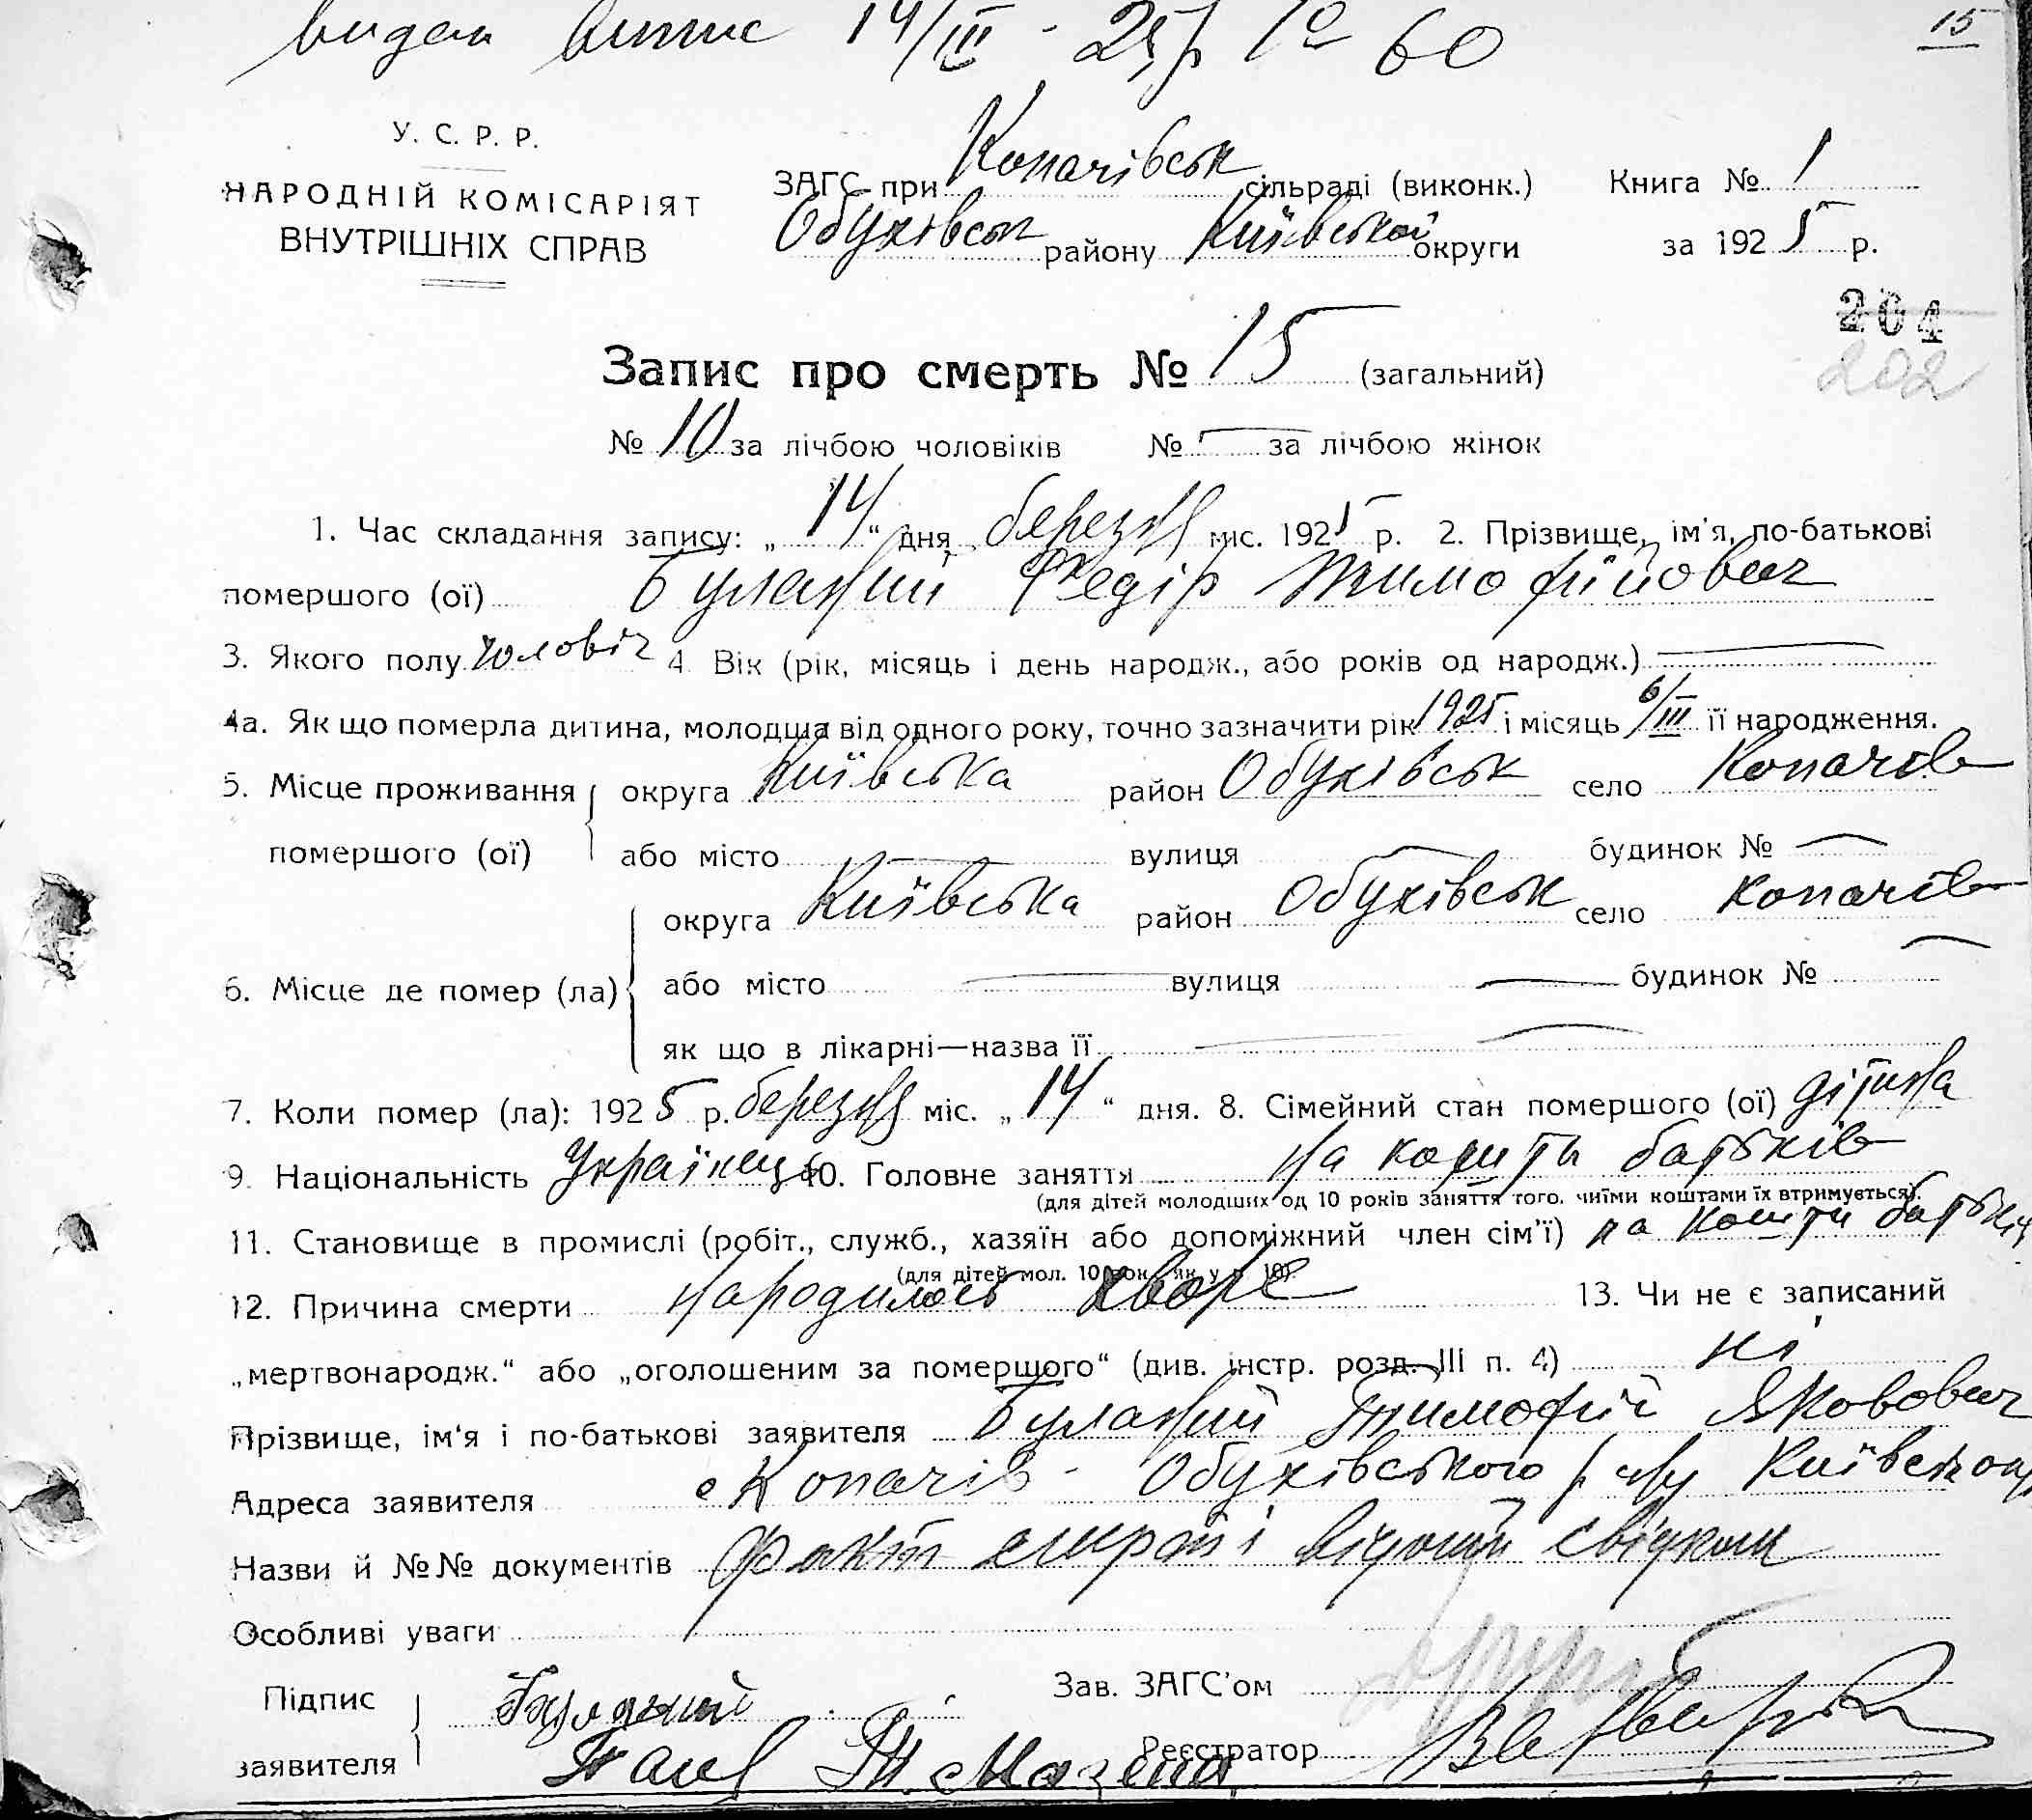 видан витяг 14/III - 25 р № 60
15
У. С. Р. Р.
НАРОДНІЙ КОМІСАРІЯТ
ВНУТРІШНІХ СПРАВ
ЗАГС при Копачівськ сільраді (виконк.) Книга № 1
Обухівськ району Київської округи за 1925 р.
204
202
Запис про смерть № 15 (загальний)
№ 10 за лічбою чоловіків № — за лічбою жінок
1. Час складання запису: „14“ дня березня міс. 1925 р. 2. Прізвище, ім'я, по-батькові
помершого (ої) Буланий Федір Тимофійович
3. Якого полу чоловіч 4. Вік (рік, місяць і день народж., або років од народж.) —
4а. Як що померла дитина, молодша від одного року, точно зазначити рік 1925 і місяць 6/III її народження.
5. Місце проживання округа Київська район Обухівськ село Копачів
помершого (ої) або місто — вулиця — будинок № —
округа Київська район Обухівськ село Копачів
6. Місце де помер (ла) або місто — вулиця — будинок № —
як що в лікарні—назва її —
7. Коли помер (ла): 1925 р. березня міс. „14“ дня. 8. Сімейний стан помершого (ої) дітина
9. Національність Українець 10. Головне заняття на кошти батьків
(для дітей молодших од 10 років заняття того, чиїми коштами їх втримується).
11. Становище в промислі (робіт., служб., хазяїн або допоміжний член сім'ї) на кошти батьків
(для дітей мол. 10 рок. як у п. 10).
12. Причина смерти народилось хворе 13. Чи не є записаний
„мертвонародж.“ або „оголошеним за помершого“ (див. інстр. розд. III п. 4) ні
Прізвище, ім'я і по-батькові заявителя Буланий Тимофій Якович
Адреса заявителя с Копачів - Обухівського р-ну Київськ окр
Назви й №№ документів факт смерті свідком
Особливі уваги
Підпис Буланий Зав. ЗАГС'ом
заявителя Т. Мазепа Реєстратор